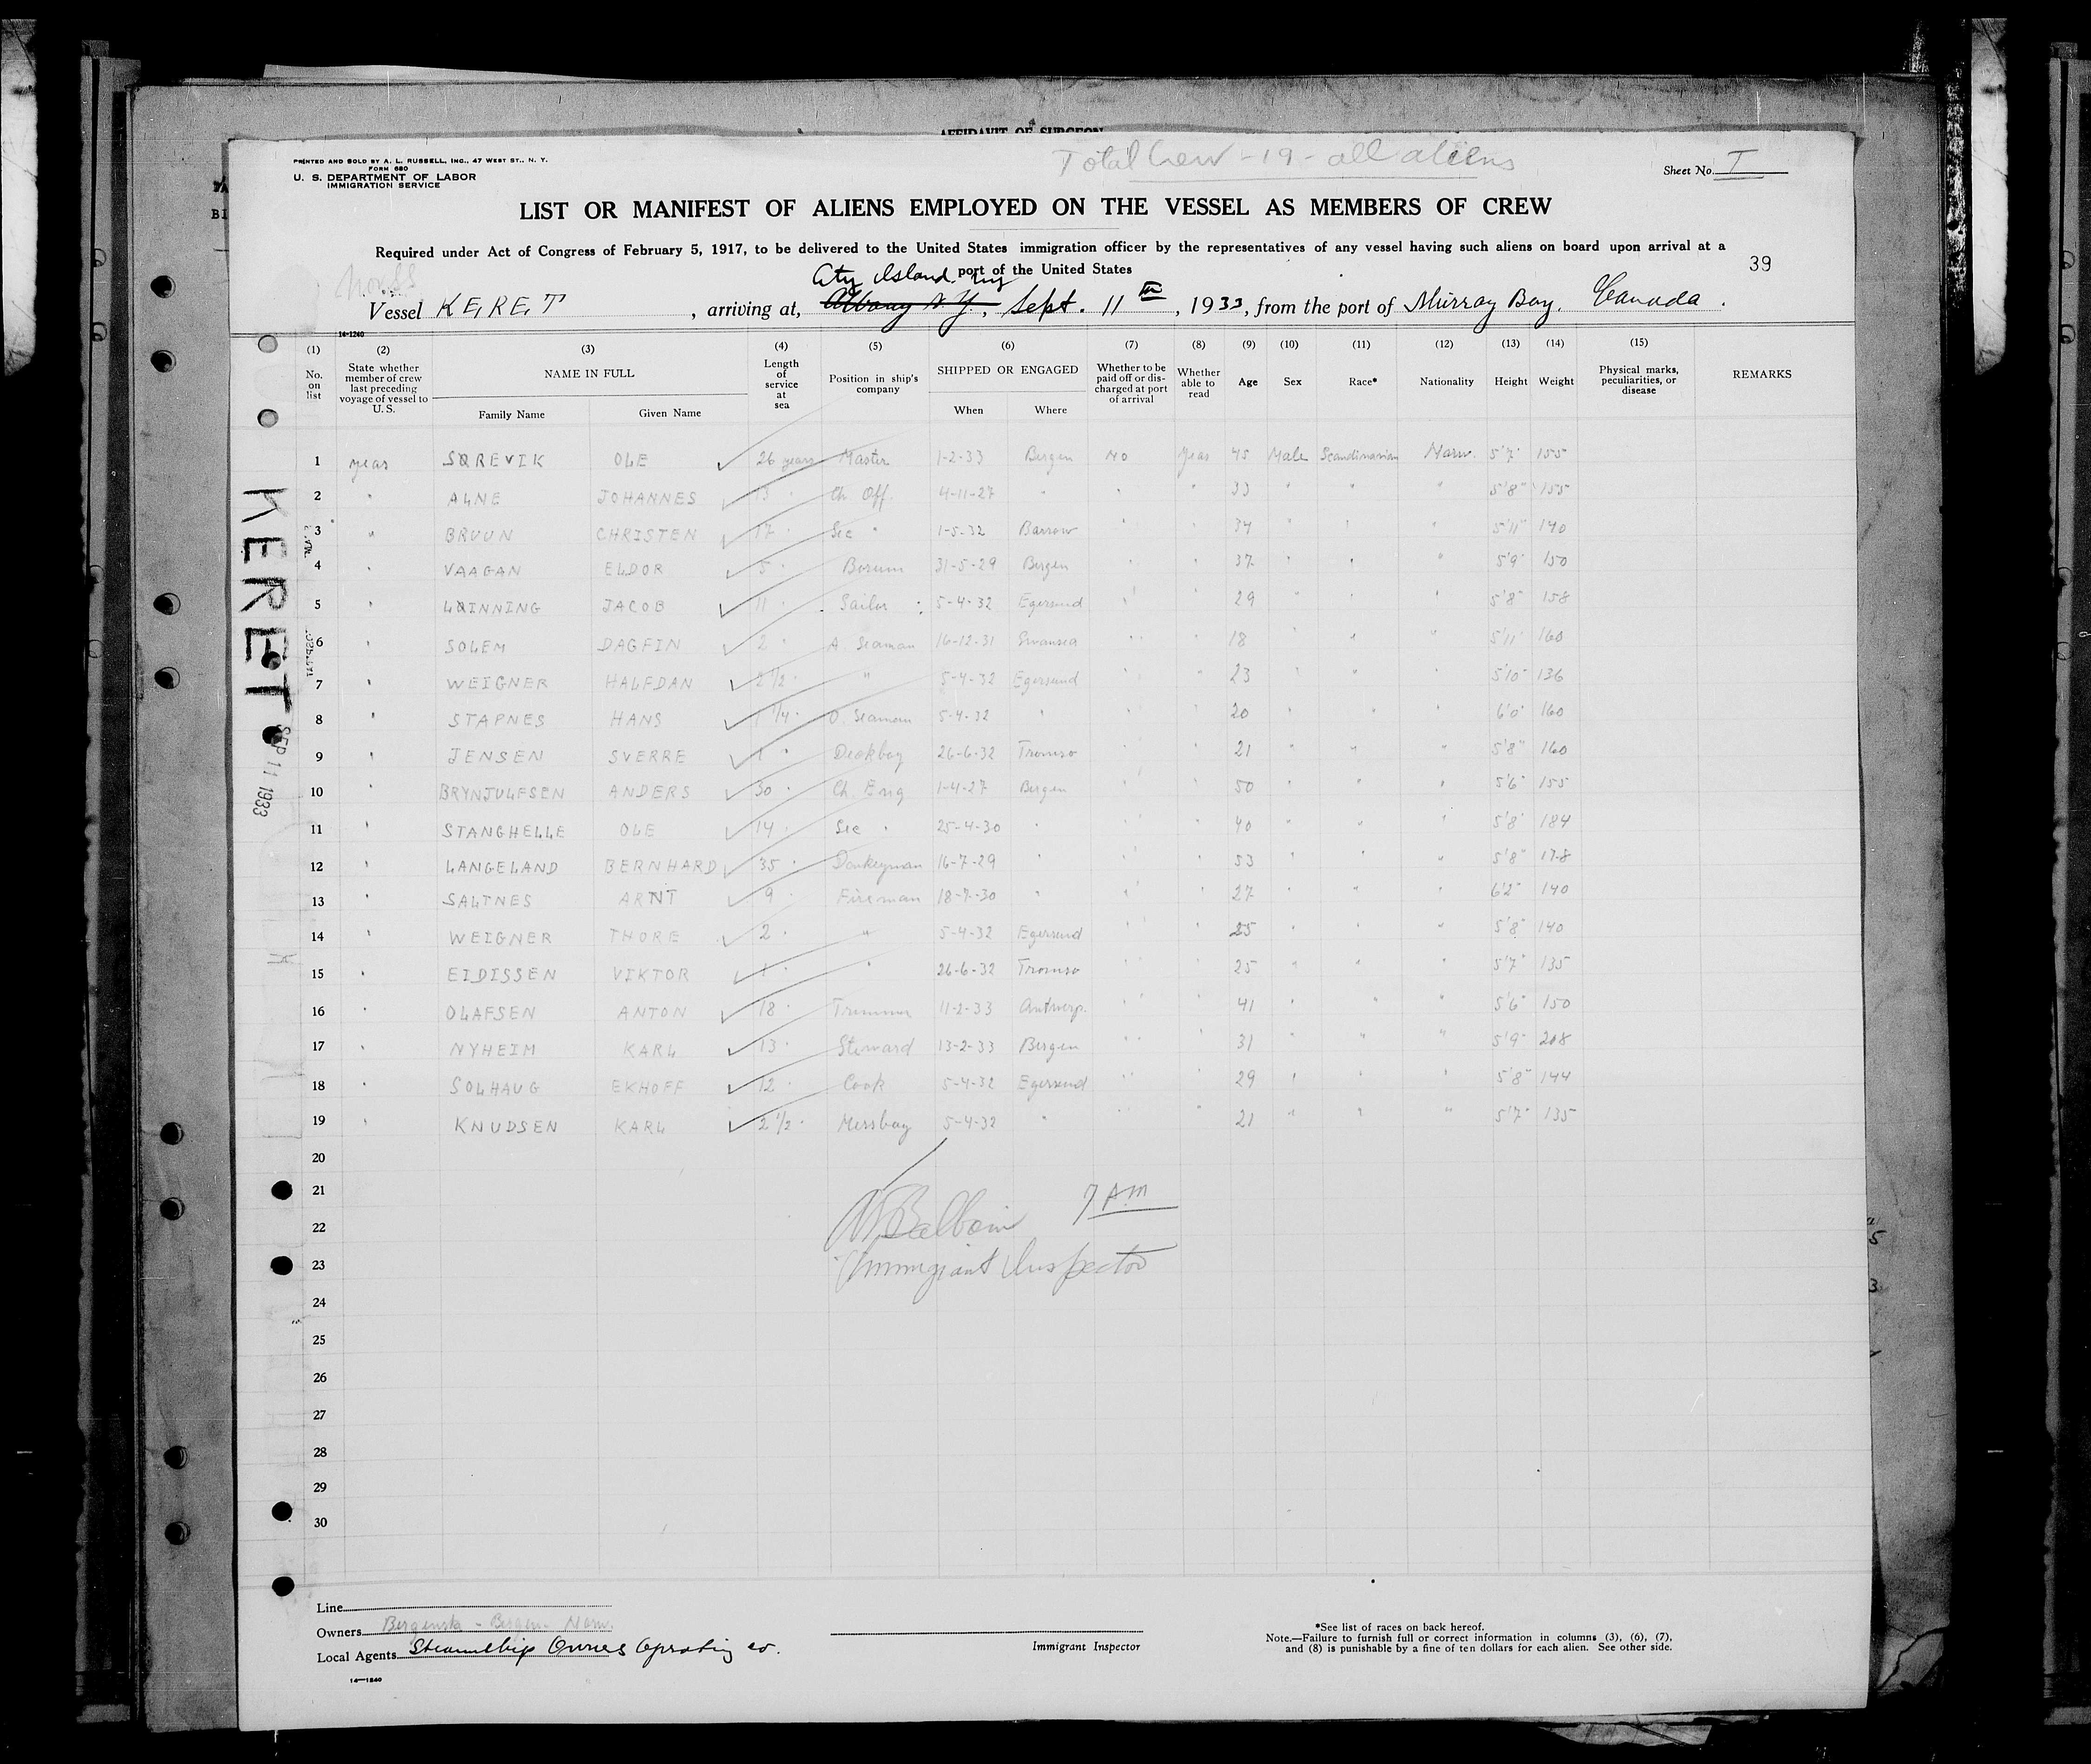 AFFIDAVIT OF SURGEON
Total Crew - 19 - all aliens
PRINTED AND SOLD BY A. L. RUSSELL, INC., 47 WEST ST., N. Y.
FORM 680
U. S. DEPARTMENT OF LABOR
IMMIGRATION SERVICE
Sheet No. I
LIST OR MANIFEST OF ALIENS EMPLOYED ON THE VESSEL AS MEMBERS OF CREW
Required under Act of Congress of February 5, 1917, to be delivered to the United States immigration officer by the representatives of any vessel having such aliens on board upon arrival at a
port of the United States
39
City Island. N.Y.
Vessel KERET, arriving at, Albany N.Y., Sept. 11th, 1933, from the port of Murray Bay, Canada.
14-1240
(1) (2) (3) (4) (5) (6) (7) (8) (9) (10) (11) (12) (13) (14) (15)
No. on list State whether member of crew last preceding voyage of vessel to U. S. NAME IN FULL Family Name Given Name Length of service at sea Position in ship's company SHIPPED OR ENGAGED When Where Whether to be paid off or discharged at port of arrival Whether able to read Age Sex Race* Nationality Height Weight Physical marks, peculiarities, or disease REMARKS
1 yeas SØREVIK OLE 26 years Master 1-2-33 Bergen No Yeas 45 Male Scandinavian Norw. 5'7" 155
2 " ALNE JOHANNES 13 " Ch. Off. 4-11-27 " " " 33 " " " 5'8" 155
3 " BRUUN CHRISTEN 17 " Sec " 1-5-32 Barrow " " 34 " " " 5'11" 140
4 " VAAGAN ELDOR 5 " Bosun 31-5-29 Bergen " " 37 " " " 5'9" 150
5 " LØINNING JACOB 11 " Sailor 5-4-32 Egersund " " 29 " " " 5'8" 158
6 " SOLEM DAGFIN 2 " A. Seaman 16-12-31 Swansea " " 18 " " " 5'11" 160
7 " WEIGNER HALFDAN 2 1/2 " " 5-4-32 Egersund " " 23 " " " 5'10" 136
8 " STAPNES HANS 1 1/4 " O. Seaman 5-4-32 " " " 20 " " " 6'0" 160
9 " JENSEN SVERRE 1 " Deckboy 26-6-32 Tromso " " 21 " " " 5'8" 160
10 " BRYNJULFSEN ANDERS 30 " Ch. Eng 1-4-27 Bergen " " 50 " " " 5'6" 155
11 " STANGHELLE OLE 14 " Sec " 25-4-30 " " " 40 " " " 5'8" 184
12 " LANGELAND BERNHARD 35 " Donkeyman 16-7-29 " " " 53 " " " 5'8" 178
13 " SALTNES ARNT 9 " Fireman 18-7-30 " " " 27 " " " 6'2" 140
14 " WEIGNER THORE 2 " " 5-4-32 Egersund " " 25 " " " 5'8" 140
15 " EIDISSEN VIKTOR 1 " " 26-6-32 Tromso " " 25 " " " 5'7" 135
16 " OLAFSEN ANTON 18 " Trimmer 11-2-33 Antwerp. " " 41 " " " 5'6" 150
17 " NYHEIM KARL 13 " Steward 13-2-33 Bergen " " 31 " " " 5'9" 208
18 " SOLHAUG EKHOFF 12 " Cook 5-4-32 Egersund " " 29 " " " 5'8" 144
19 " KNUDSEN KARL 2 1/2 " Messboy 5-4-32 " " " 21 " " " 5'7" 135
20
21
22
23
24
25
26
27
28
29
30
7 AM
Immigrant Inspector
KERET
SEP 11 1933
Line
Owners Bergenske - Bergen Norw.
Local Agents Steamship Owners Operating co.
Immigrant Inspector
*See list of races on back hereof.
Note.—Failure to furnish full or correct information in columns (3), (6), (7),
and (8) is punishable by a fine of ten dollars for each alien. See other side.
14—1240